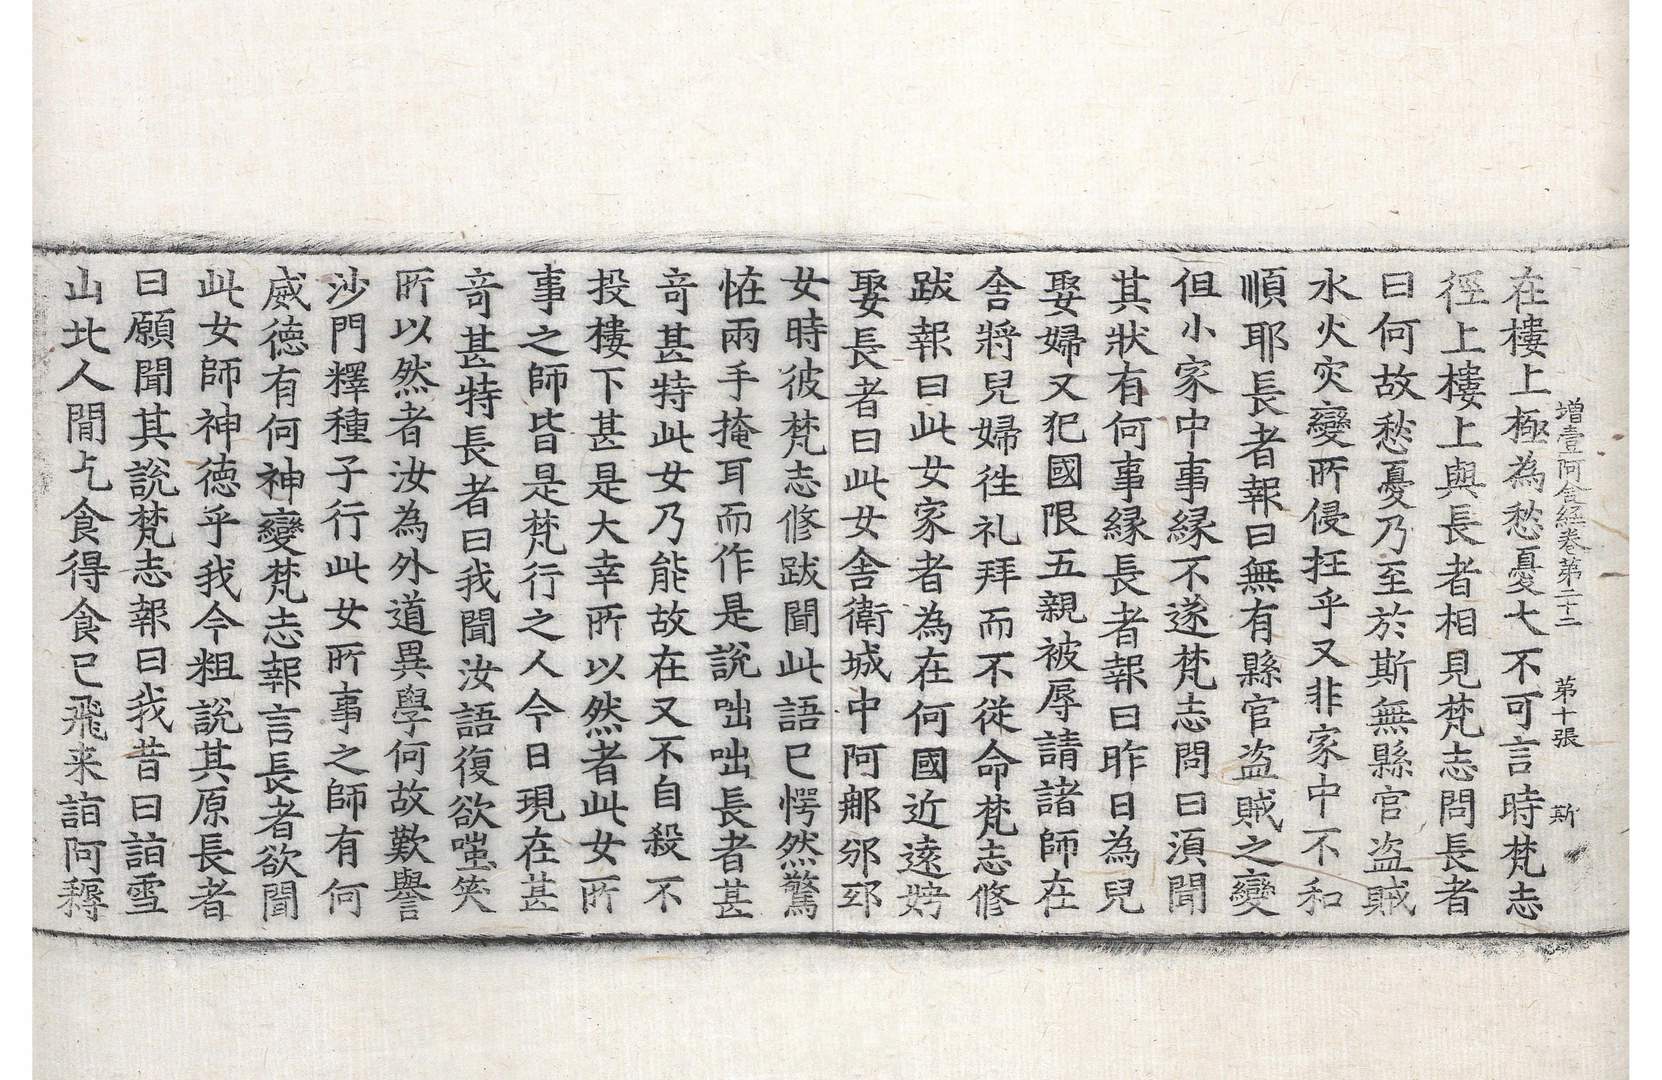 增壹阿含經卷第二十二 第十張 斯
在樓上極為愁憂大不可言時梵志
徑上樓上與長者相見梵志問長者
曰何故愁憂乃至於斯無縣官盜賊
水火灾變所侵抂乎又非家中不和
順耶長者報曰無有縣官盜賊之變
但小家中事緣不遂梵志問曰湏聞
其狀有何事緣長者報曰昨日為兒
娶婦又犯國限五親被辱請諸師在
舍將兒婦徃礼拜而不從命梵志修
跋報曰此女家者為在何國近遠娉
娶長者曰此女舍衛城中阿那邠邸
女時彼梵志修跋聞此語已愕然驚
恠兩手掩耳而作是說咄咄長者甚
竒甚特此女乃能故在又不自殺不
投樓下甚是大幸所以然者此女所
事之師皆是梵行之人今日現在甚
竒甚特長者曰我聞汝語復欲嗤笑
所以然者汝為外道異學何故歎譽
沙門釋種子行此女所事之師有何
威德有何神變梵志報言長者欲聞
此女師神德乎我今粗說其原長者
曰願聞其說梵志報曰我昔日詣雪
山北人間乞食得食已飛来詣阿耨